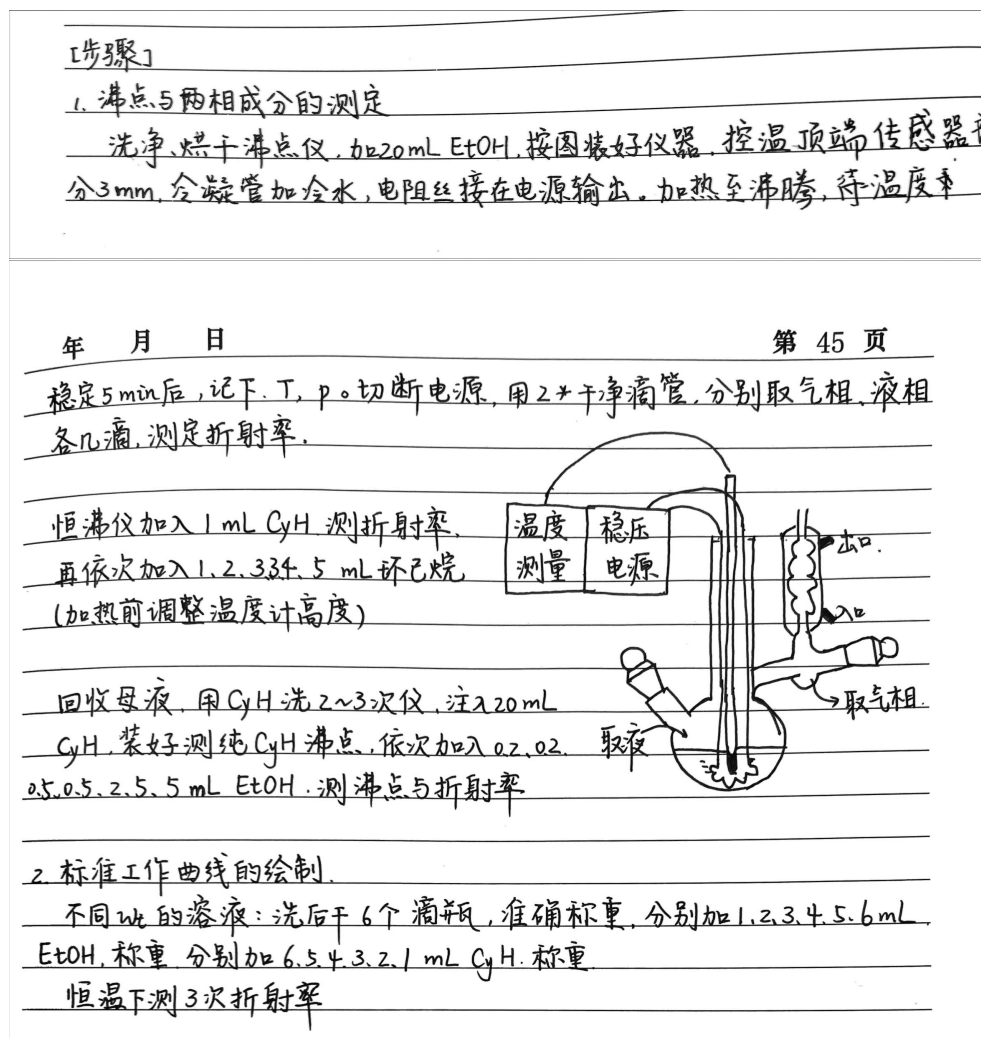 [步骤]
1. 沸点与两相成分的测定
洗净、烘干沸点仪,加20mL EtOH,按图装好仪器,控温顶端传感器
分3mm,冷凝管加冷水,电阻丝接在电源输出。加热至沸腾,待温度
年 月 日 第 45 页
稳定5min后,记下.T,p。切断电源,用2*干净滴管,分别取气相、液相
各几滴,测定折射率.
恒沸仪加入1mL CyH 测折射率,
再依次加入1、2、3,3.4、5 mL环己烷
(加热前调整温度计高度)
温度
测量
稳压
电源
出口.
入口
取气相.
取液
回收母液,用CyH洗2~3次仪,注入20mL
CyH,装好测纯CyH沸点,依次加入0.2,0.2,
0.5、0.5、2、5、5mL EtOH.测沸点与折射率
2.标准工作曲线的绘制.
不同wt的溶液:洗后干6个滴瓶,准确称重,分别加1、2、3、4、5、6mL
EtOH,称重 分别加6、5、4、3、2、1 mL CyH.称重
恒温下测3次折射率